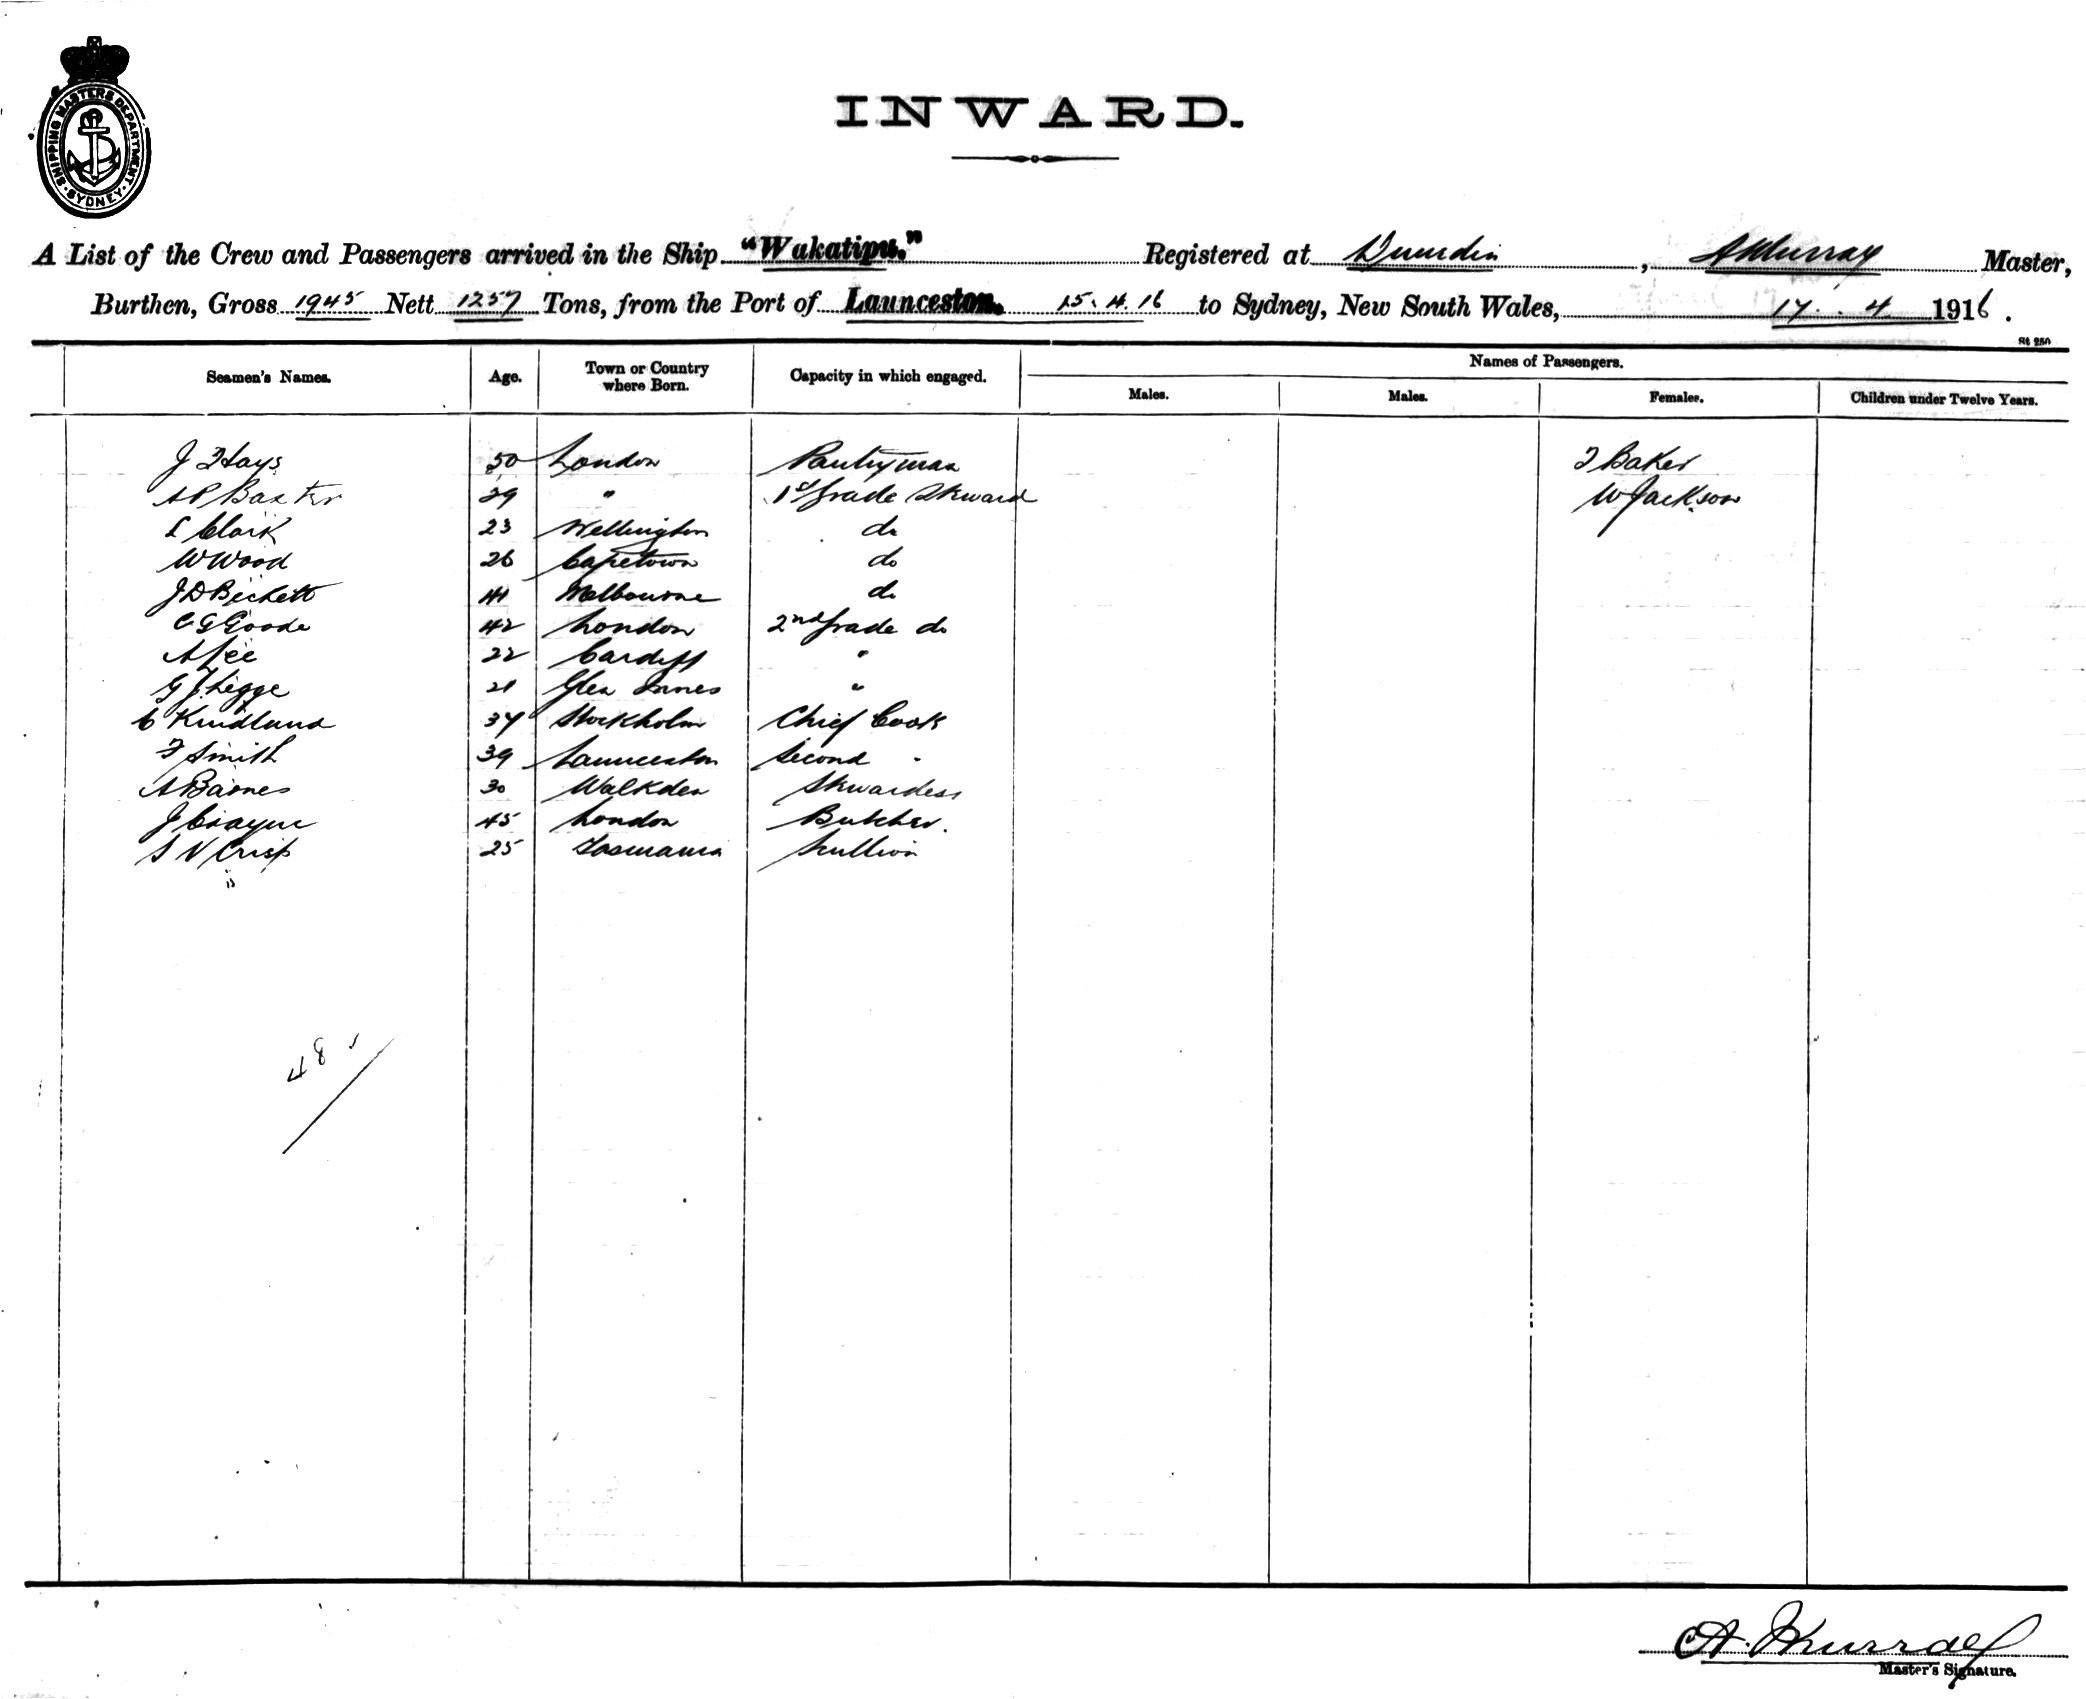 SHIPPING MASTERS DEPARTMENT · SYDNEY ·
INWARD.
A List of the Crew and Passengers arrived in the Ship "Wakatipu." Registered at Dunedin, A Murray Master,
Burthen, Gross 1945 Nett 1257 Tons, from the Port of Launceston. 15.4.16 to Sydney, New South Wales, 17.4 1916.
St 250
Seamen's Names. Age. Town or Country where Born. Capacity in which engaged. Names of Passengers.
Males. Males. Females. Children under Twelve Years.
J Hays 50 London Pantryman J Baker
A P Baxter 29 " 1st Grade Steward W Jackson
L Clark 23 Wellington do
W Wood 26 Capetown do
J D Beckett 41 Melbourne do
C G Goode 42 London 2nd Grade do
A Lee 22 Cardiff "
G J Legge 21 Glen Innes "
C Kindlund 37 Stockholm Chief Cook
F Smith 39 Launceston Second "
A Barnes 30 Walkden Stewardess
J Crayne 45 London Butcher.
S V Crisp 25 Tasmania Scullion
13
48
A. Murray
Master's Signature.